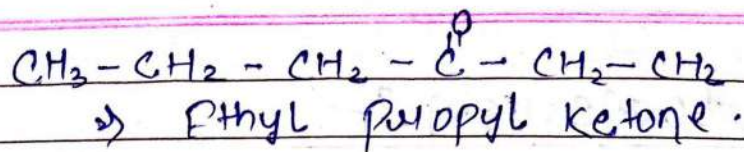 O
CH3 - CH2 - CH2 - C - CH2 - CH2
⇒ Ethyl propyl ketone.